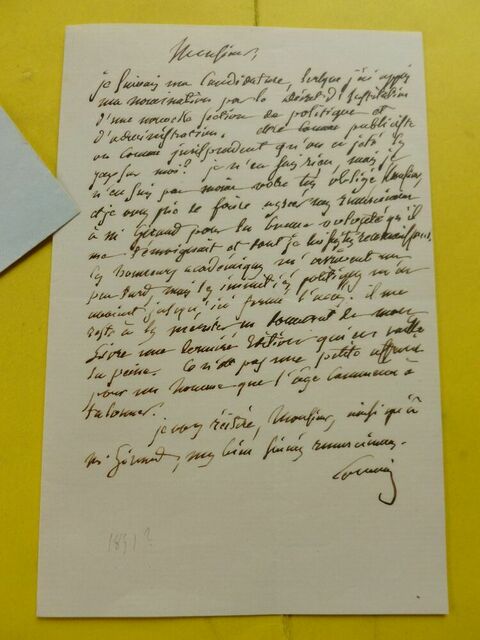 Monsieur,
je suivais ma candidature, lorsque j'ai appris
ma nomination par le décret d'institution
d'une nouvelle section de politique et
d'administration. comme publiciste
ou comme jurisprudent qu'on a jeté les
yeux sur moi? je n'en sais rien, mais je
n'en suis pas moins votre très obligé Monsieur,
et je vous prie de faire agréer mes remerciemens
à M. Giraud pour la bonne volonté qu'il
me témoignait et dont je lui suis reconnaissant.
les honneurs académiques m' arrivent un
peu tard, mais les inimitiés politiques m'en
avaient jusqu'ici fermé l'accès. il me
reste à les mériter en donnant de mon
livre une dernière édition qui en vaille
la peine. Ce n'est pas une petite affaire
pour un homme que l'âge commence à
talonner.
je vous réitère, Monsieur, ainsi qu'à
M. Giraud, mes bien sincères remerciemens.
1851?